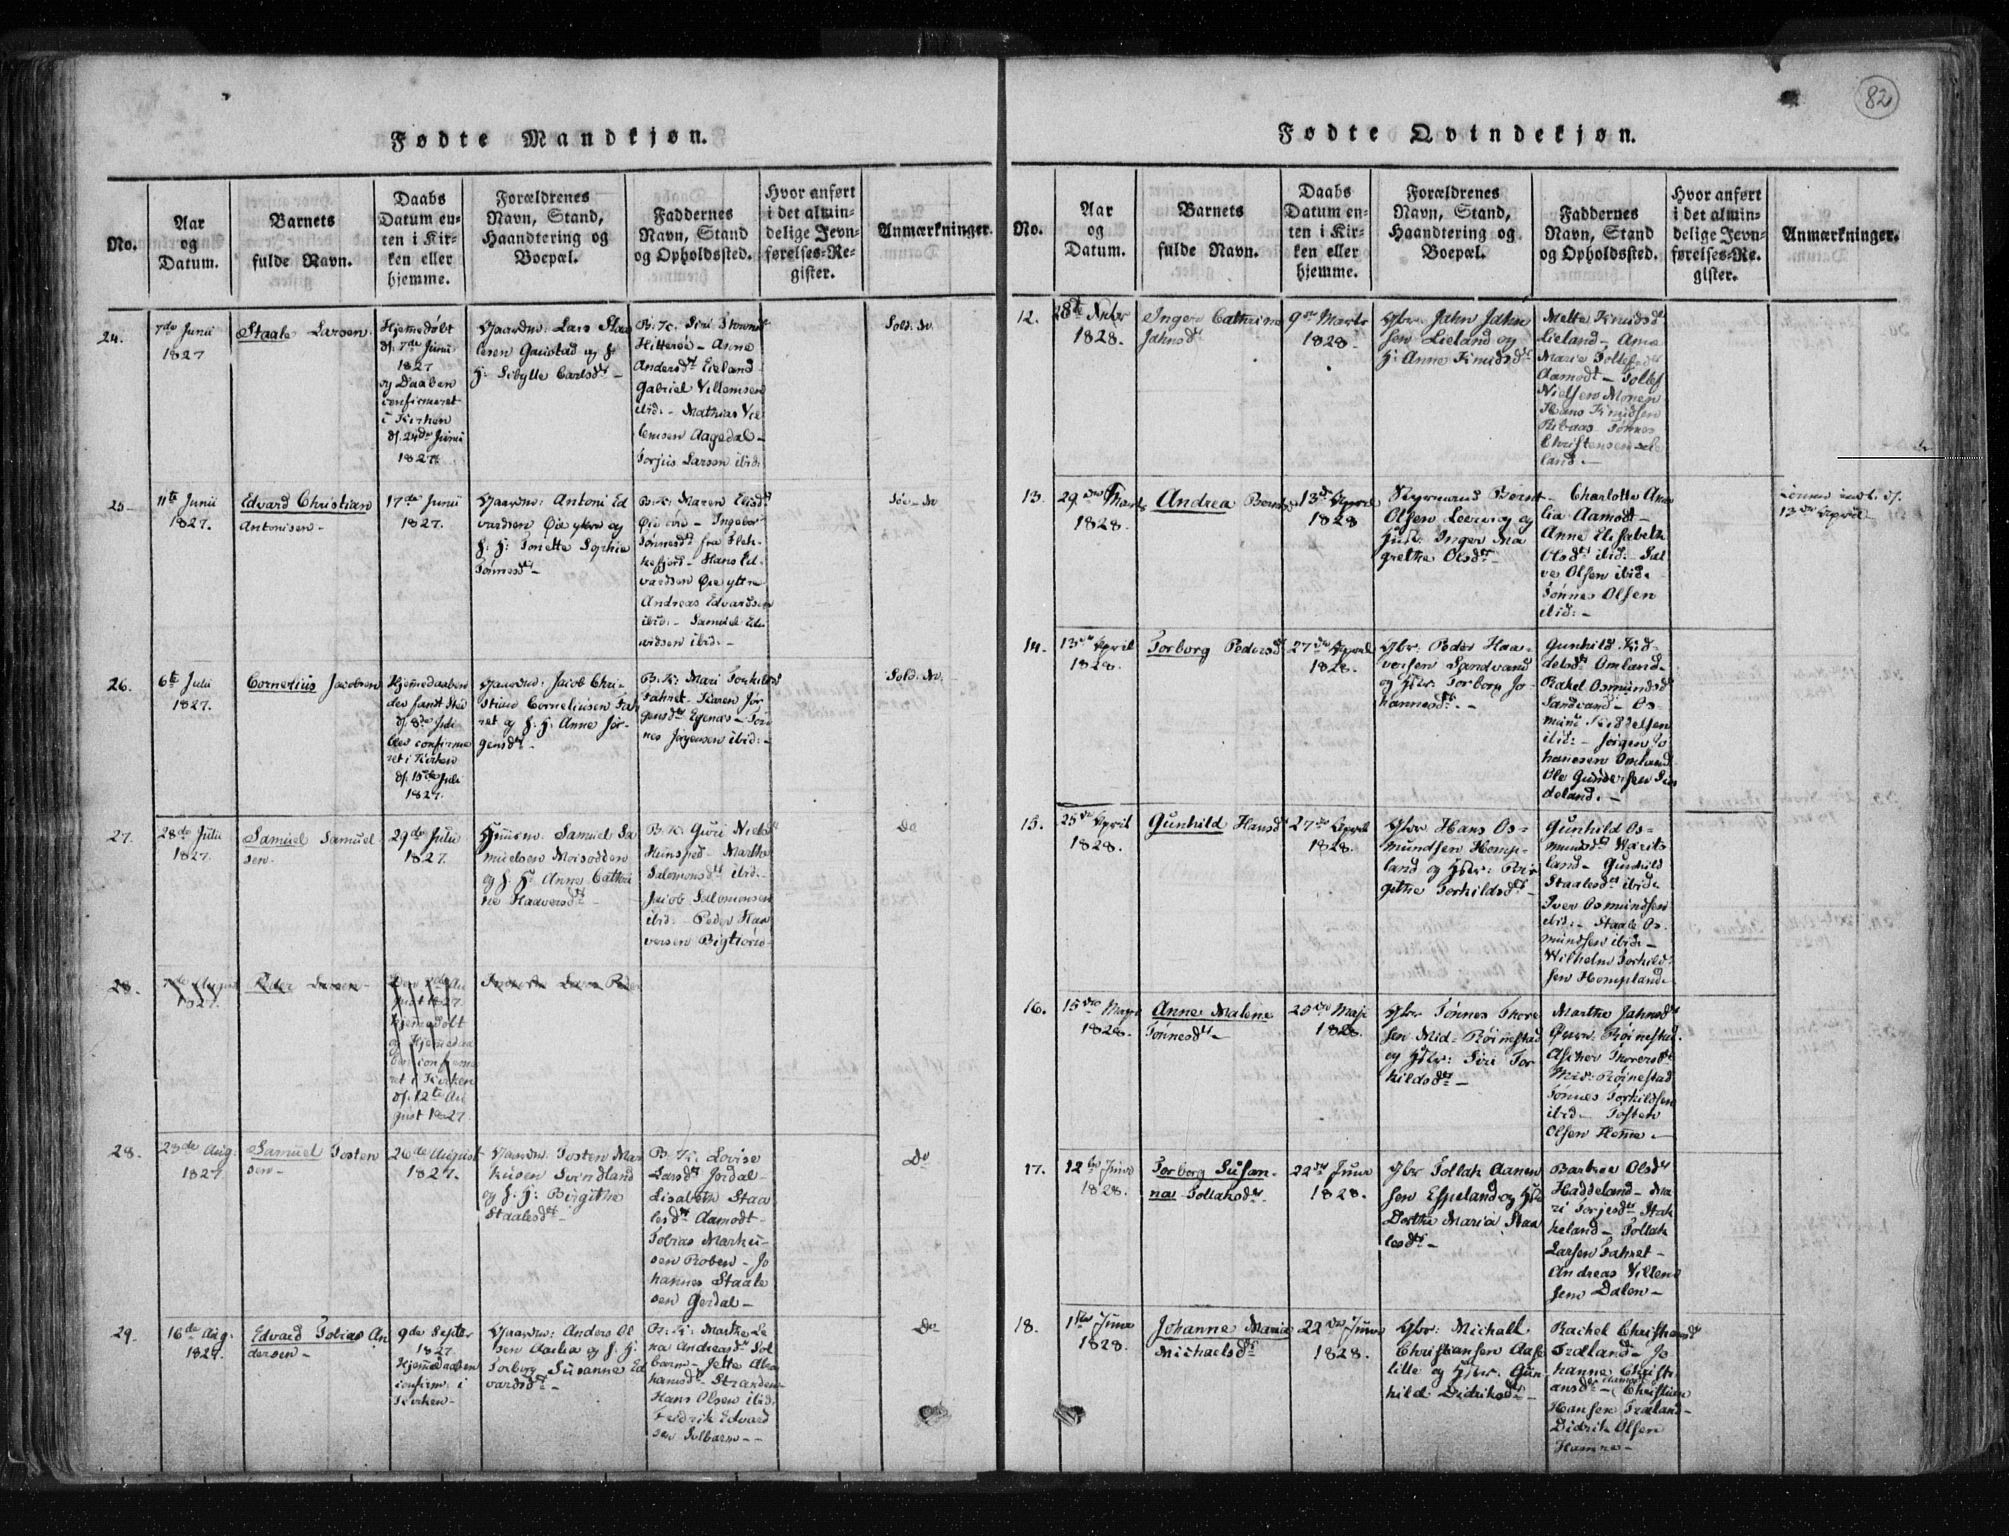 82
Fødte Mandkjøn.
No.
Aar
og
Datum.
Barnets
fulde Navn.
Daabs
Datum en-
ten i Kir-
ken eller
hjemme.
Forældrenes
Navn, Stand,
Haandtering og
Boepæl.
Faddernes
Navn, Stand
og Opholdssted.
Hvor anført
i det almin-
delige Jevn-
førelses-Re-
gister.
Anmærkninger.
24.
7de Junii
1827
Staale Larsen.
Hjemedøbt
d. 7de Junii
1827
og Daaben
confirmeret
i Kirken
d. 24de Junii
1827.
Gaardm: Lars Staa
lesen Gaustad og
H: Sibylle Carlsdt
B. K. Siri
Hitterøe - Anne
Andersdt Eieland
Gabriel Villemsen
ibid: - Mathias Vil
lemsen Aagedal -
Torjus Larsen ibid:
Sold. Sv.
25
11te Junii
1827.
Edvard Christian
Antonisen -
17de Junii
1827.
Gaardm: Antoni Ed
vardsen Øie ytre og
H: Tonette Sophia
Tønnesdt -
B. K. Maren Elisdt
Øie - Ingebor
Tønnesdt fra Flek-
kefjord - Hans Ed-
vardsen Øie ytre
Andreas Edvardsen
ibid. - Samuel Ed-
vardsen ibid. -
26.
6te Julii
1827.
Cornelius Jacobsen
Hjemedaaben
d. 8de Juli
blev confirme
ret i Kirken
d. 15de Juli
1827.
Gaardm: Jacob Chri-
stian Corneliusen Fah
ret og H: Anne Jør-
gensdt -
B. K. Mari Torkildsd
Fahret - Karen Jør
gensdt Egenæs - Tøn
nes Jørgensen ibid: -
Sold. Sv.
27.
28de Julii
1827.
Samuel Samuel
sen.
29de Julii
1827.
Samuel Sa
muelsen Moisodden
og H: Anne Cathri
ne Haaversdt -
B. K. Guri Nielsdt
Hunsped - Marthe
Salomonsdt ibid. -
Jacob Salomonsen
ibid: Peder Haa
versen Bigtiøn -
Do
28.
7de August
1827.
Peder Larsen -
Den 7de Au
gust 1827
Hjemedøbt
og Hjemedaa
ben confirme
ret i Kirken
d. 12te Au
gust 1827.
28.
23de Aug.
1827.
Samuel Tosten
sen -
26de August
1827.
Gaardm: Tosten Mar
kusen Svindland
og H: Birgithe
Staalesdt -
B. K. Lovise
Larsdt Jerdal -
Lisabeth Staa
lesdt Aamodt -
Tobias Marku-
sen Roben - Jo
hannes Staale
sen Gerdal -
Do
29.
16de Aug.
1827.
Edvard Tobias An
dersen -
9de Septbr
1827.
Hjemedaaben
confirm. i
Kirken -
Gaardm: Anders Ol
sen Aaelia og H:
Torborg Susanne Ed
vardsdt -
B. K. Marthe Le
na Andreasdt Sol
barm - Jette Abra
hamsdt Stranden
Hans Olsen ibid.
Fredrik Edvard
sen Solbarm - -
Do
Fødte Qvindekjøn.
No.
Aar
og
Datum.
Barnets
fulde Navn.
Daabs
Datum en-
ten i Kir-
ken eller
hjemme.
Forældrenes
Navn, Stand,
Haandtering og
Boepæl.
Faddernes
Navn, Stand
og Opholdssted.
Hvor anført
i det almin-
delige Jevn-
førelses-Re-
gister.
Anmærkninger.
12.
28de
1828.
Inger Cathrine
Jahnsdt
9de Marts
1828.
Gbr. Jahn Jahn
sen Lieland og
H: Anne Knudsdt
Mette Knudsdt
Lieland - Ane
Marie Tollefsdt
Aamodt - Tollef
Nielsen Monen
Hans Knudsen
Ribaas Tønnes
Christensen
land. -
13.
29de Marts
1828.
Andrea Berntsdt
13de April
1828
Bernt
Olsen Leervig og
Hust: Inger Ma
grethe Olsdt -
Charlotte Ama
lia Aamodt -
Anne Elisabeth
Olsdt ibid: - Sal
ve Olsen ibid.
Tønnes Olsen
ibid: -
13de April
14.
13de April
1828.
Torborg Pedersdt
27de April
1828.
Gbr. Peder Haa-
versen Sandvand
og Hstr: Torborg Jo
hannesdt. -
Gunhild Kid-
delsdt Omland.
Rakel Osmundsdt
Sandvand - Os-
mund Kiddelsen
ibid: - Jørgen Jo
hannesen Omland
Ole Gundersen
deland. -
15.
25de April
1828.
Gunhild Hansdt
27de April
1828.
Gbr Hans Os-
mundsen Homp-
land og Hstr: Bir
githe Torkildsdt
Gunhild Os-
mundsdt
land - Gunhild
Staalesdt ibid.
Iver Osmundsen
ibid. - Staale Os-
mundsen ibid. -
Wilhelm Torkild-
sen Hompland
16.
15de Maji
1828.
Anne Malene
Tønnesdt -
25de Maji
1828.
Gbr Tønnes Thore
sen Mid-Røinestad
og Hstr: Siri Tor
kildsdt -
Marthe Jahnsdt
Øvre Røinestad.
Ascher Thoresdt
Mid-Røinestad
Tønnes Torkildsen
ibid. - Tosten
Olsen Heme -
17.
12te Junii
1828.
Torborg Susan-
na Tollaksdt -
22de Junii
1828.
Gbr Tollak Aanen
sen Espeland og Hstr
Dorthe Maria Staa
lesdt -
Barbroe Olsdt
Haddeland - Ma
ri Torjesdt Stak
keland - Tollak
Larsen Fahret -
Andreas Villem
sen Dalen -
18.
1ste Junii
1828.
Johanne Maria
Michaelsdt
22de Junii
1828.
Gbr: Michael
Christiansen Aase
lille og Hstr. Gun
hild Didriksdt -
Rachel Christiansdt
Træland - Jo
hanne Christi
ansdt Aamodt - Christian
Hansen Træland -
Didrik Olsen
Hamre -